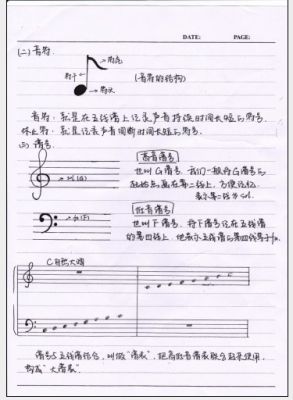 DATE: PAGE:
(二) 音符.
符尾
符干
符头
(音符的结构)
音符: 就是在五线谱上记录声音持续时间长短的符号.
休止符: 就是记录声音间断时间长短的符号.
(三) 谱号.
高音谱号
也叫G谱号. 我们一般将G谱号的
起始点画在第二线上, 方便记忆.
表示第二线为sol.
sol (G)
低音谱号
也叫F谱号. 将F谱号记在五线谱
的第四线上, 他表示五线谱的第四线等于fa.
fa (F)
C自然大调
谱号与五线谱结合, 叫做"谱表", 把高低音谱表联合起来使用,
构成"大谱表".